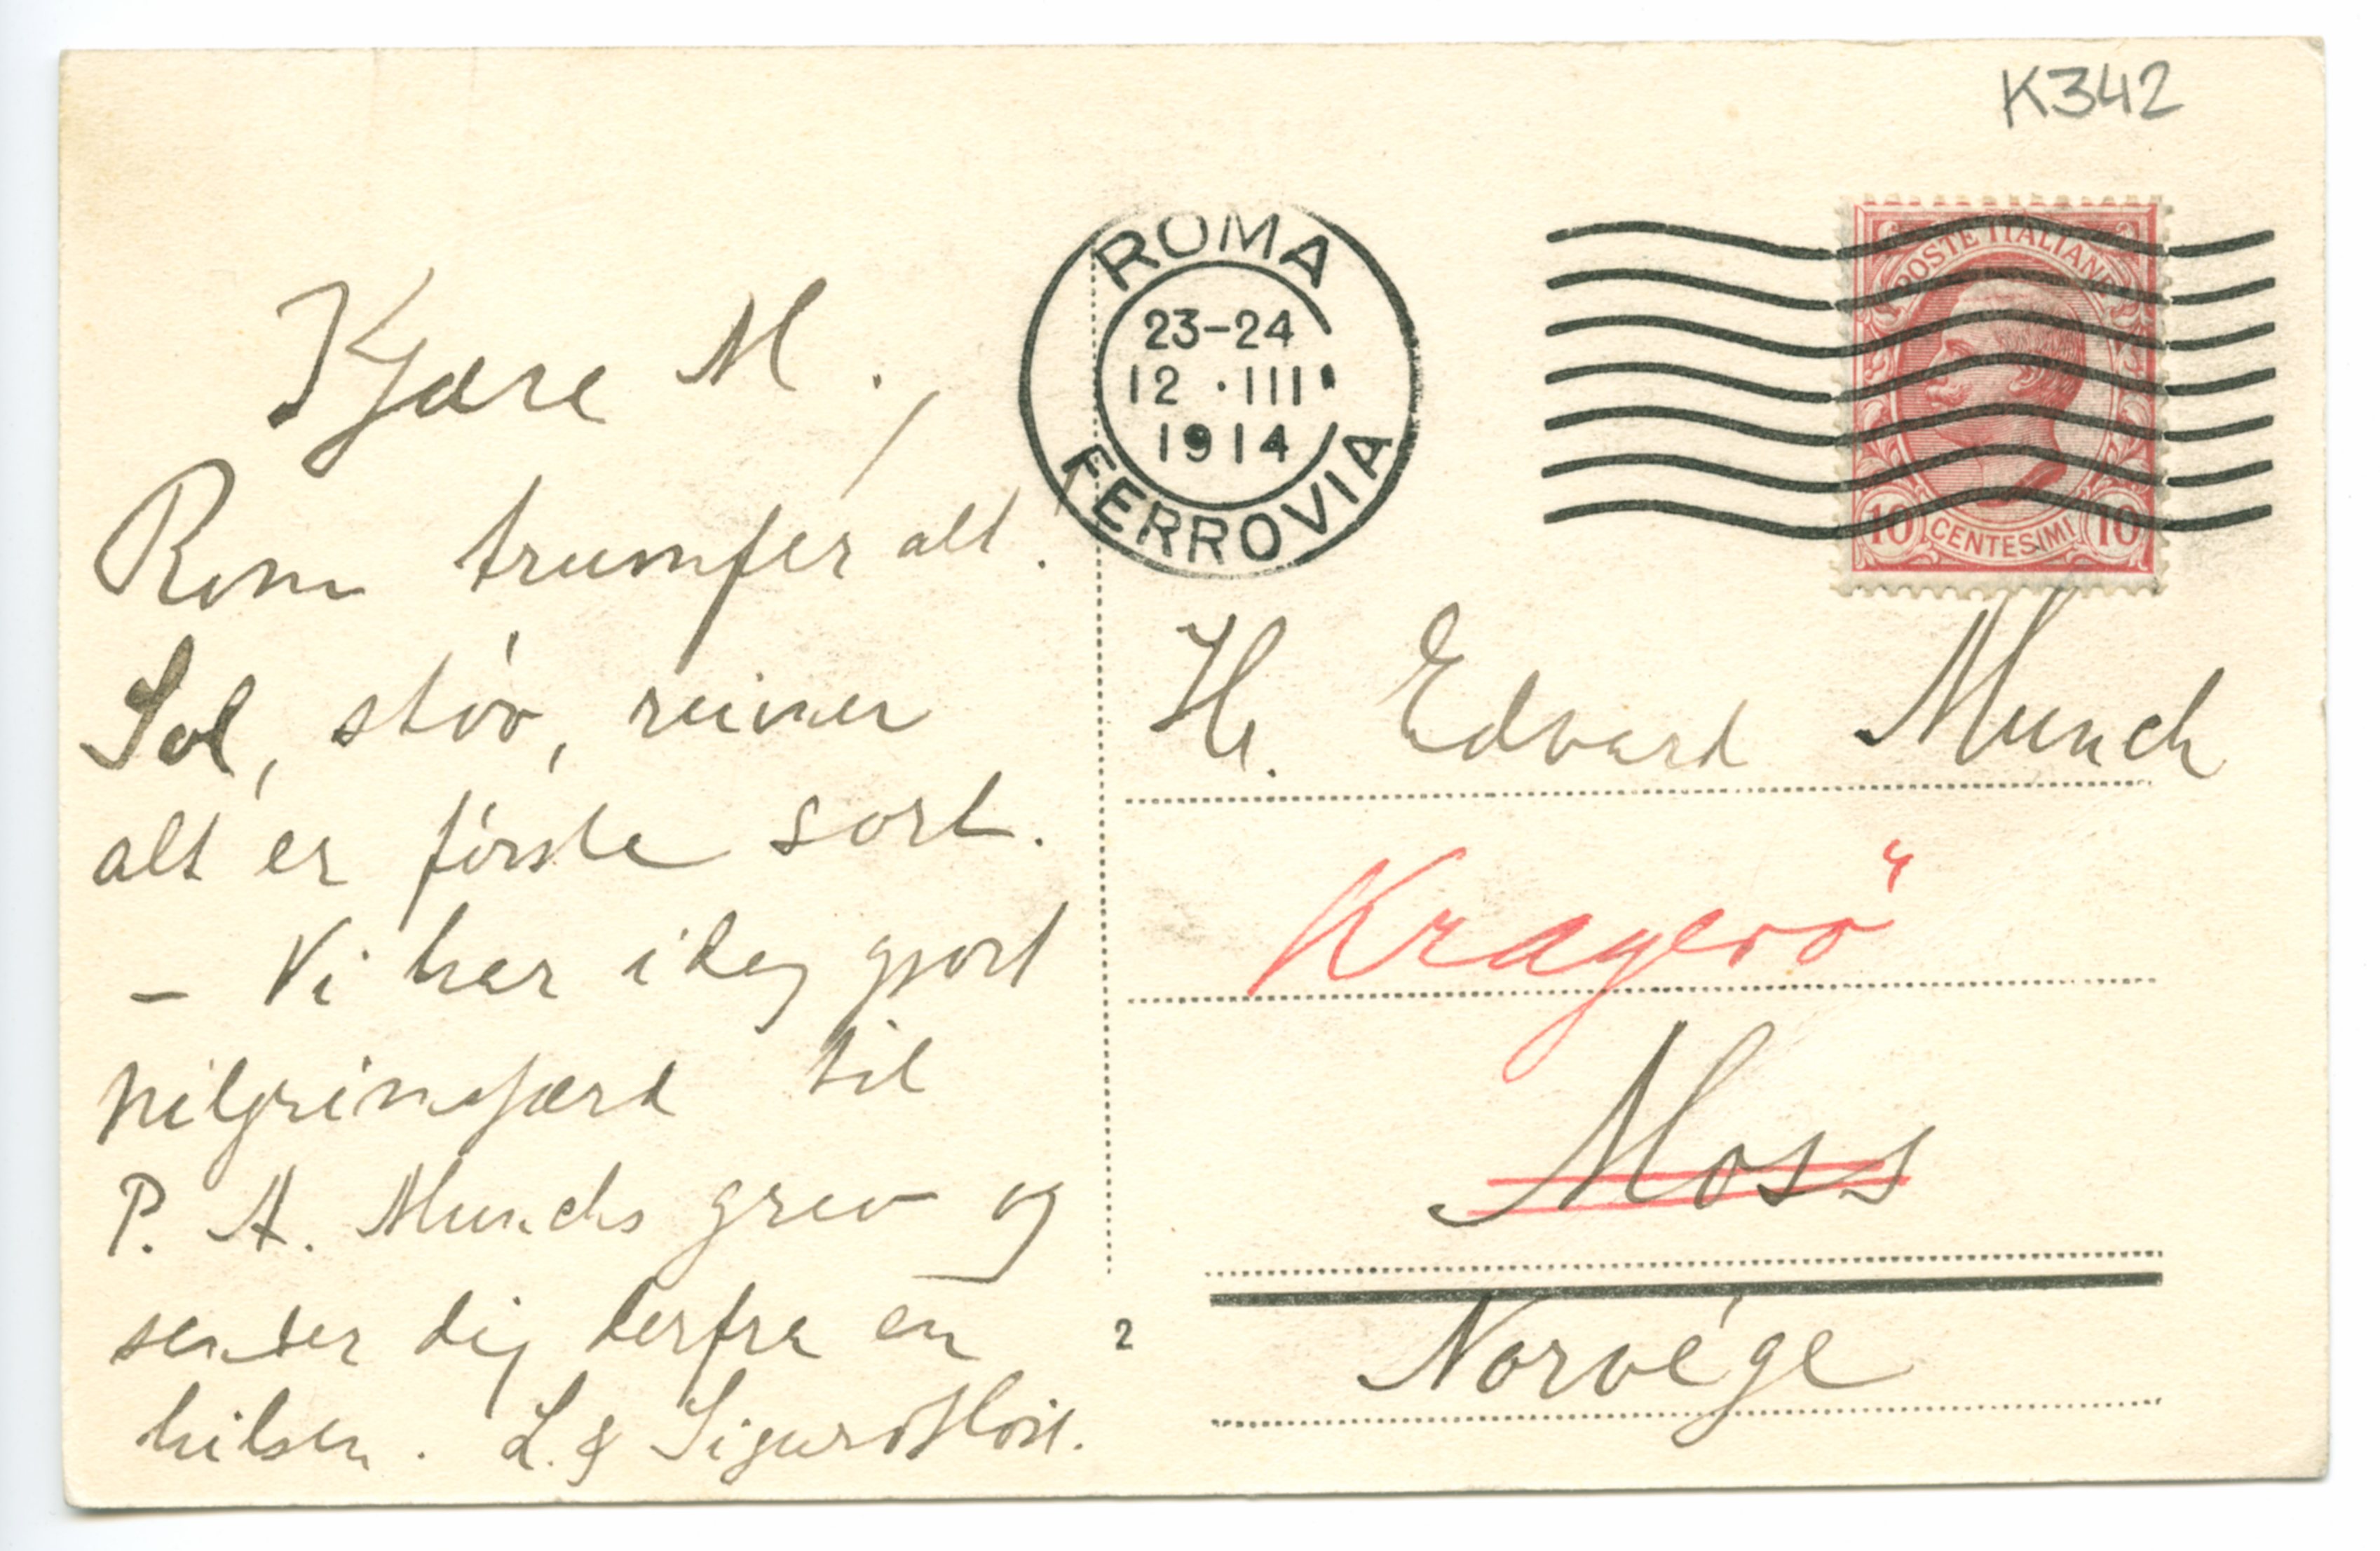 K342
ROMA
23-24
12 · III
1914
FERROVIA
POSTE ITALIANE
10 CENTESIMI 10
Kjære M.,
Rom trumfer alt.
Sol, støv, ruiner
alt er første sort.
– Vi har idag gjort
pilgrimsfærd til
P. A. Munchs grav og
sender dig derfra en
hilsen. L. & Sigurd Høst.
Hr. Edvard Munch
Kragerö
Moss
2
Norvége